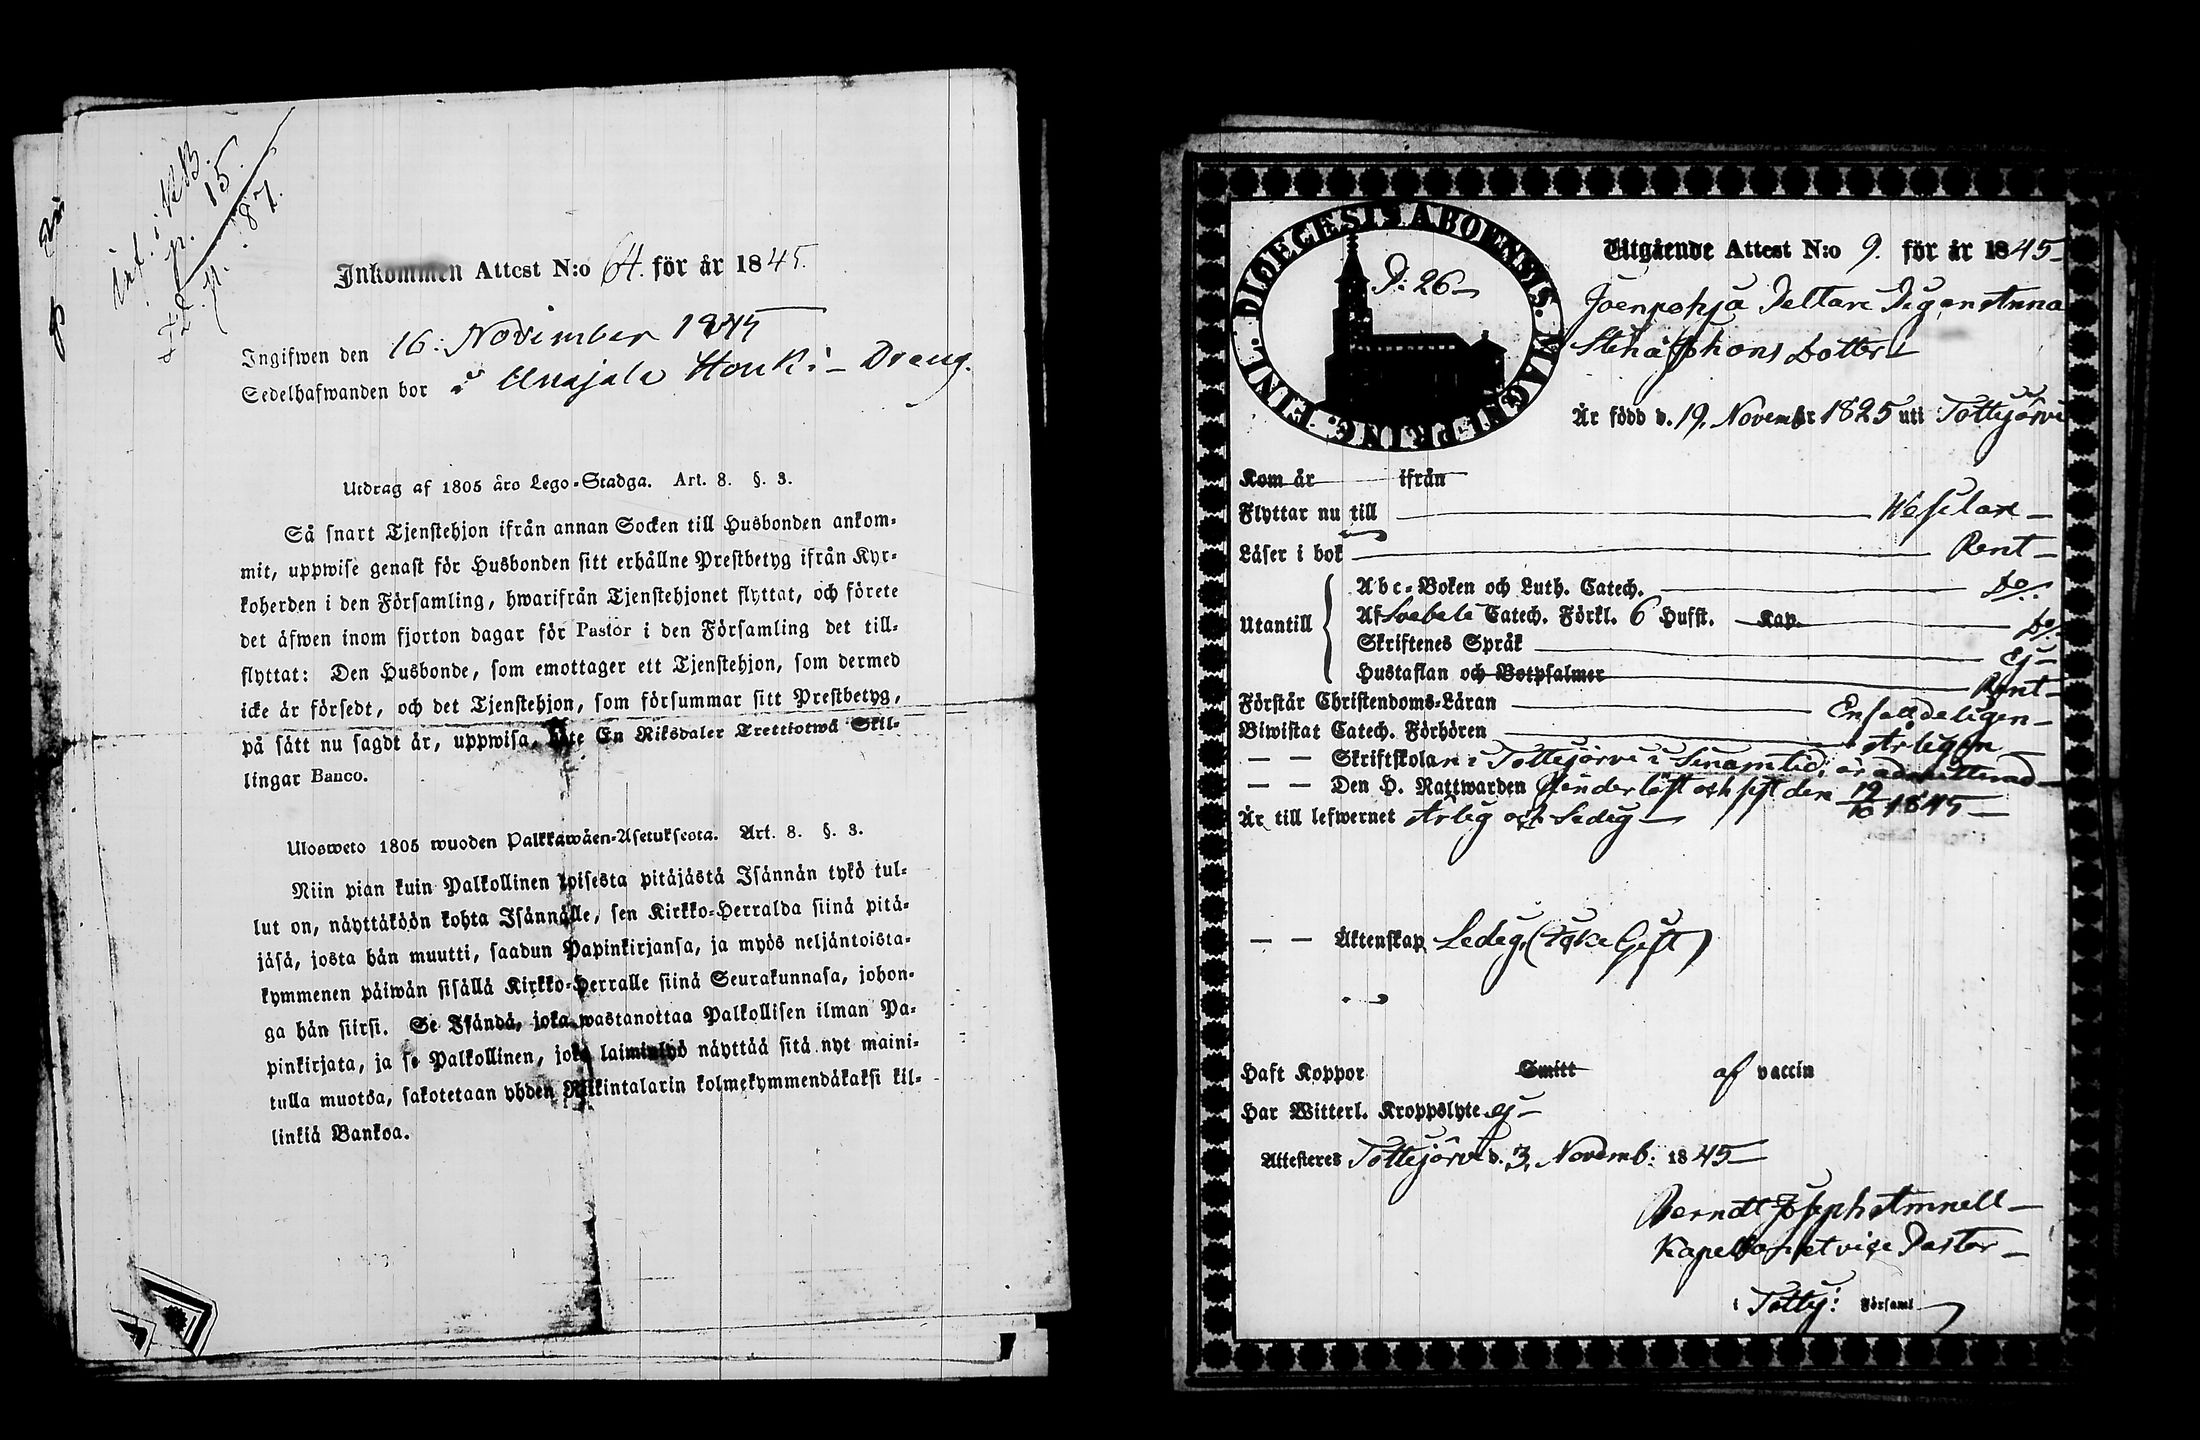 Inf. i KB.
p. 15.
Fl. 87.
Inkommen Attest N:o 64. för år 1845.
Ingifwen den 16: November 1845
Sedelhafwanden bor i Unajala Houki – Dreng.
Utdrag af 1805 års Lego-Stadga. Art. 8. §. 3.
Så snart Tjenstehjon ifrån annan Socken till Husbonden ankom-
mit, uppwise genast för Husbonden sitt erhållne Prestbetyg ifrån Kyr-
koherden i den Församling, hwarifrån Tjenstehjonet flyttat, och förete
det äfwen inom fjorton dagar för Pastor i den Församling det till-
flyttat: Den Husbonde, som emottager ett Tjenstehjon, som dermed
icke är försedt, och det Tjenstehjon, som försummar sitt Prestbetyg,
på sätt nu sagdt är, uppwisa, böte En Riksdaler Trettiotwå Skil-
lingar Banco.
Uloswetο 1805 wuoden Palkkawäen-Asetuksesta. Art. 8. §. 3.
Niin pian kuin Palkollinen toisesta pitäjästä Isännän tykö tul-
lut on, näyttäköön kohta Isännälle, sen Kirkko-Herralda siinä pitä-
jäsä, josta hän muutti, saadun Papinkirjansa, ja myös neljäntoista-
kymmenen päiwän sisällä Kirkko-Herralle siinä Seurakunnasa, johon-
ga hän siirsi. Se Isändä, joka wastanottaa Palkollisen ilman Pa-
pinkirjata, ja se Palkollinen, joka laiminlyö näyttää sitä nyt maini-
tulla muotoa, sakotetaan yhden Riikintalarin kolmekymmendäkaksi kil-
linkiä Bankoa.
DIOECESIS ABOENSIS. MAGNI PRINC. FINL.
P: 26
Utgående Attest N:o 9. för år 1845
Joenpohja Dettare Pigan Anna
Stina Johans Dotter
Är född d. 19. Novembr 1825 uti Tottijärvi
Kom år ifrån
Flyttar nu till Wesilax
Läser i bok Rent
Utantill
Abc-Boken och Luth. Catech. Do
Af Svebeli Catech. Förkl. 6 Hufst. Kap. Do
Skriftenes Språk Ej
Hustaflan och Botpsalmer Rent
Förstår Christendoms-Läran Enfaldeligen
Biwistat Catech. Förhören Årligen
— — Skriftskolan i Tottijärvi i Sinom tid, är admitterad
— — Den H. Nattwarden Känder löst och sist den 19/10 1845
Är till lefwernet Ärlig och Sedig
— — Äktenskap Ledig, (Icke Gift)
Haft Koppor Smitt af vaccin
Har Witterl. Kroppslyte ej
Attesteres Tottijärvi d. 3. Novemb: 1845
Berndt Joseph Amnell
Kapellan et vice Pastor
i Totty: Församl